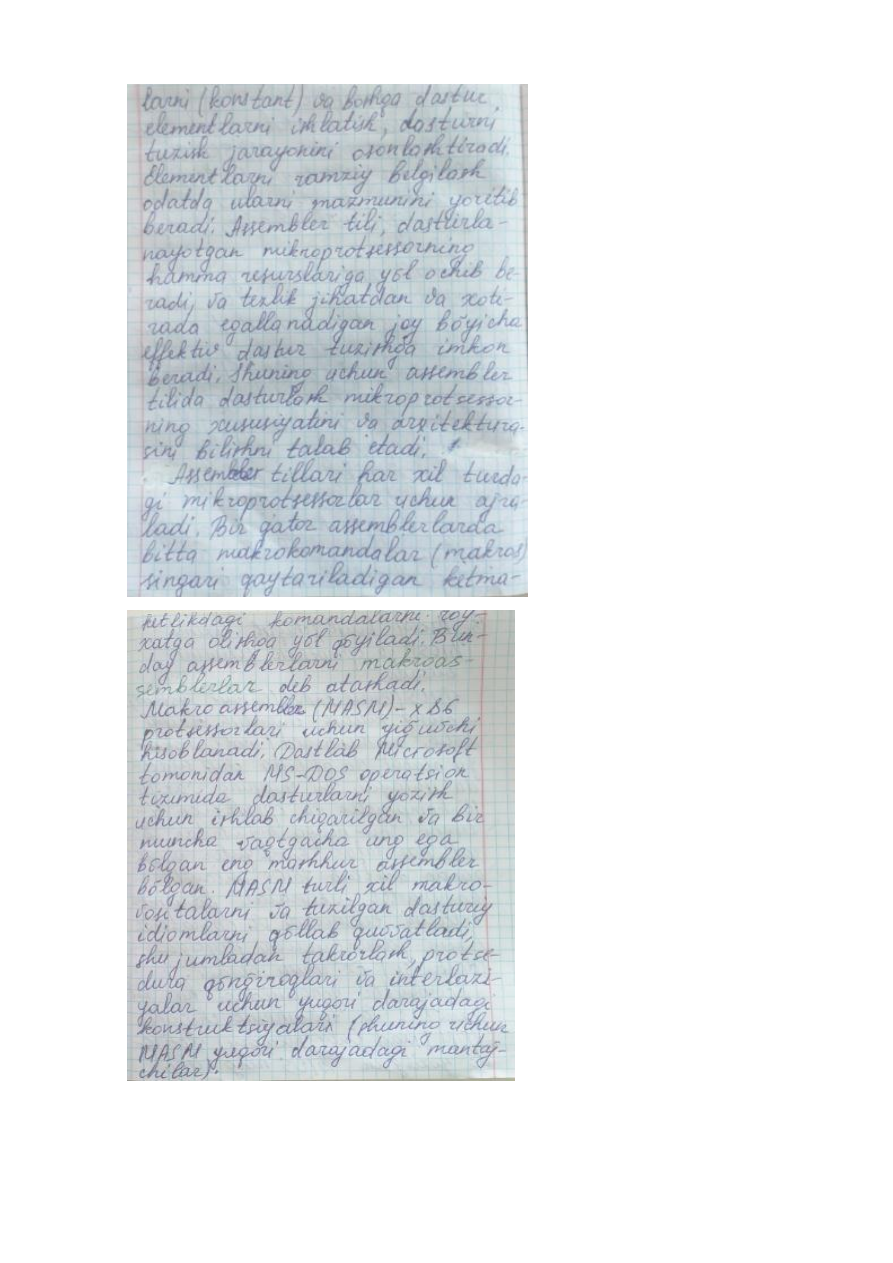 larni (konstant) va boshqa dastur
elementlarni ishlatish, dasturni
tuzish jarayonini osonlashtiradi.
Elementlarni ramziy belgilash
odatda ularni mazmunini yoritib
beradi. Assembler tili, dasturla-
nayotgan mikroprotsessorning
hamma resurslariga yõl ochib be-
radi, va tezlik jihatdan va xoti-
rada egallanadigan joy bõyicha
effektiv dastur tuzishga imkon
beradi. Shuning uchun assembler
tilida dasturlash mikroprotsessor-
ning xususiyatini va arxitektura-
sini bilishni talab etadi.
Assembler tillari har xil turda-
gi mikroprotsessorlar uchun ajra-
ladi. Bir qator assemblerlarda
bitta makrokomandalar (makros)
singari qaytariladigan ketma-
ketlikdagi komandalarni rõy-
xatga olishga yõl qõyiladi. Bun-
day assemblerlarni makroas-
semblerlar deb atashadi.
Makroassembler (MASM) - x86
protsessorlari uchun yiğuvchi
hisoblanadi. Dastlab Microsoft
tomonidan MS-DOS operatsion
tizimida dasturlarni yozish
uchun ishlab chiqarilgan va bir
muncha vaqtgacha ung ega
bõlgan eng mashhur assembler
bõlgan. MASM turli xil makro-
vositalarni va tuzilgan dasturiy
idiomlarni qõllab quvvatladi,
shu jumladan takrorlash, protse-
dura qõnğiroqlari va
yalar uchun yuqori darajadagi
konstruktsiyalari (shuning uchun
MASM yuqori darajadagi mantaj-
chilar).